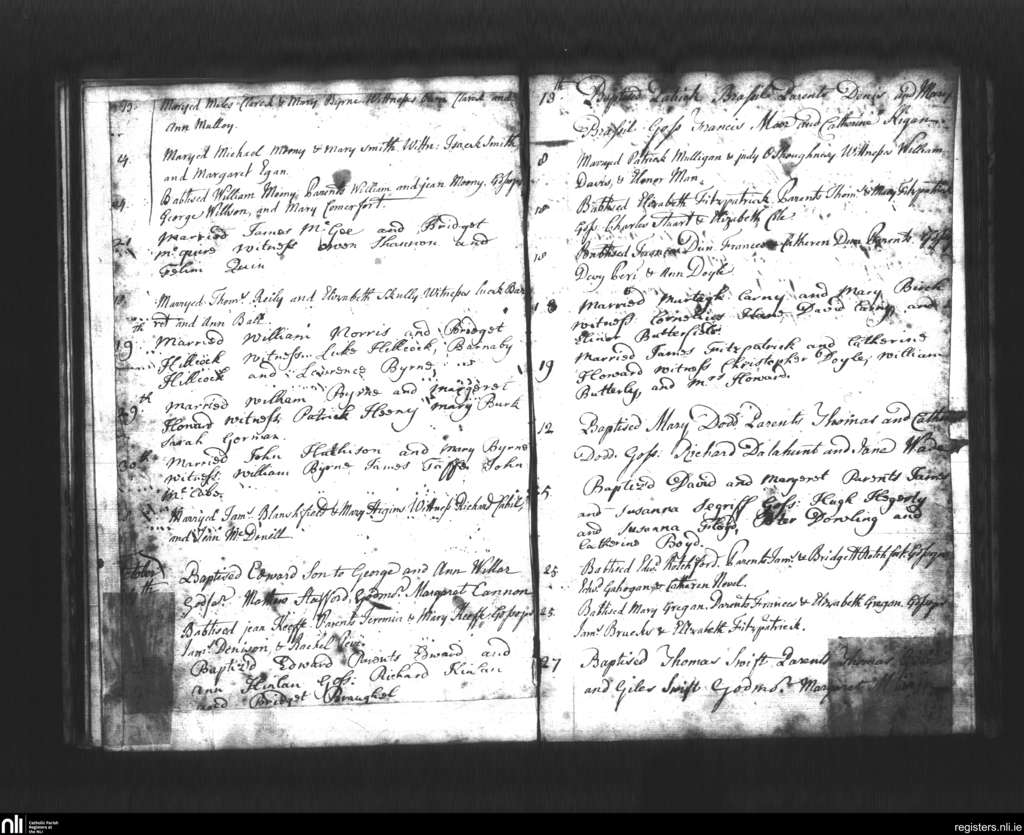 Maryed Miles Clarck & Mary Birne Wittnesses Clarck and
Ann Mulloy.
24. Maryed Michael Moony & Mary Smith Wittn: Isaack Smith
and Margaret Egan.
24. Babtised William Moony, Parents William and jean Moony, Gossops
George Willson, and Mary Comerfort
Married James McGee and Bridget
McGuire witness Owen Shannon and
Felim Quin
Marryed Thoms Reily and Elizabeth Skully Witnesses
and Ann Ball.
19th Married William Norris and Bridget
Hillcock witness Luke Hillcock, Barnaby
Hillcock and Lawrence Byrne,
29th Married William Byrne and Margeret
Howard witness Patrick Heeney Mary Burk
Sarah Gorman.
30th Married John Hathison and Mary Byrne
witness William Byrne James Taffe John
McCabe,
Marryed Jams Blanshfield & Mary Higins Witness Richard
and Jean McDonell
October Baptised Edward Son to George and Ann Walker
Godfar Matthew Stafford Godmr Margaret Cannon
Babtised jean Keeffe Parents Jeremia & Mary Keeffe Gossops
Jams Denison, & Rachel
Baptiz'd Edward Parents Edward and
Ann Hinlan Goss: Richard Kinlan
and Bridget
13th Baptised Patrick Brassil Parents Denis and Mary
Brassil Goss Francis Moor and Catherine Kigan
8 Maryed Patrick Mulligan & judy O Shoughnesy Wittnesses William
Davis, & Elonor Man
18 Babtised Elizabeth Fitzpatrick Parents Thoms & Mary Fitzpatrick
Goss Charles Stuart & Elizabeth
18 Babtised Dun Frances & Catheren Dun Parents
& Ann Doyle
18 Married Murtagh Carny and Mary Birck
witness Cornelius David Carny and
Elinor Butterfield
19 Married James Fitzpatrick and Catherine
Howard witness Christopher Doyle, William
Butterly, and Mrs Howard.
12 Baptised Mary Dodd Parents Thomas and
Dodd. Goss: Richard Dalahunt and Jane
25. Baptiz'd David and Margeret Parents James
and Susanna Segriff Goss: Hugh Hegerty
and Susanna Floyd, Peter Dowling and
Catherine Boyd.
25 Babtised Edwd Rotchford. Parents Jams & Bridgett Rotchfort Gossops
Edwd Gahogan & Catheren Novel.
25. Babtised Mary Gregan. Parents Frances & Elizabeth Gregan. Gossops
Jams Bruecks & Elizabeth Fitzpatrick.
27 Baptised Thomas Swift Parents Thomas
and Giles Swift Godmr Margaret
nli Catholic Parish
Registers at
the NLI
registers.nli.ie